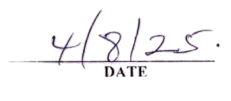 4/8/25.
DATE